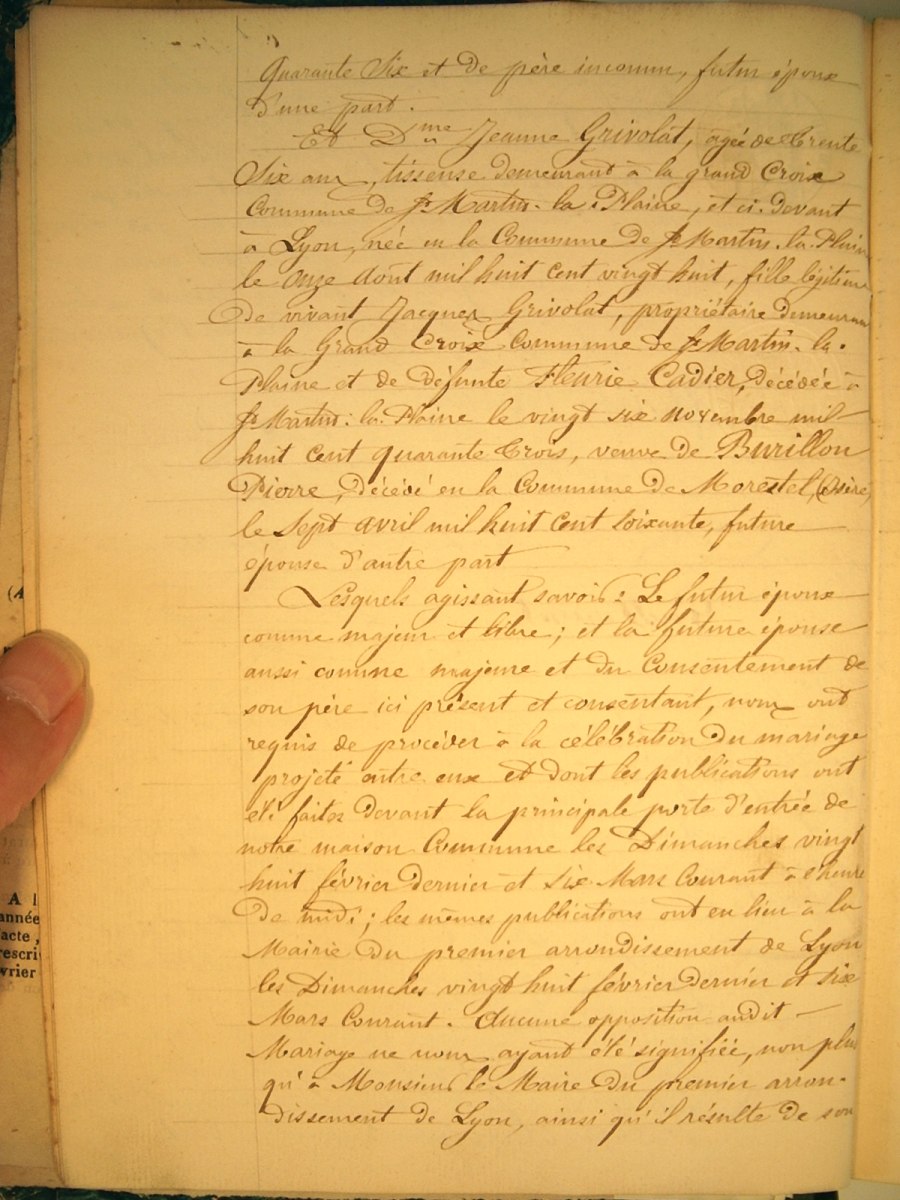 quarante six et de père inconnu, futur époux
d'une part.
Et Dme Jeanne Grivolat, agée de trente
six ans, tisseuse demeurant à la grand Croix
Commune de St Martin-la-Plaine, et ci-devant
à Lyon, née en la Commune de St Martin-la-Plaine
le onze août mil huit cent vingt huit, fille légitime
de vivant Jacques Grivolat, propriétaire demeurant
à la Grand Croix Commune de St Martin-la-
Plaine et de défunte Fleurie Cadier, décédée à
St Martin-la-Plaine le vingt six novembre mil
huit cent quarante trois, veuve de Burillon
Pierre, décédé en la Commune de Morestel, (Isère)
le sept avril mil huit cent soixante, future
épouse d'autre part
Lesquels agissant savoir: Le futur époux
comme majeur et libre; et la future épouse
aussi comme majeure et du Consentement de
son père ici présent et consentant, nous ont
requis de procéder à la célébration du mariage
projeté entre eux et dont les publications ont
été faites devant la principale porte d'entrée de
notre maison Commune les Dimanches vingt
huit février dernier et six Mars Courant à l'heure
de midi; les mêmes publications ont eu lieu à la
Mairie du premier arrondissement de Lyon
les Dimanches vingt huit février dernier et six
Mars Courant. Aucune opposition audit
Mariage ne nous ayant été signifiée, non plus
qu'à Monsieur le Maire du premier arron-
dissement de Lyon, ainsi qu'il résulte de son
(A
A l
année
acte,
rescri
vrier